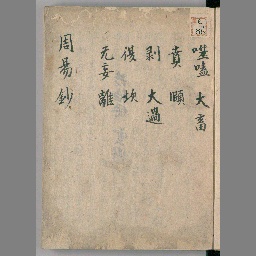 噬嗑 大畜
賁 頤
剥 大過
復 坎
无妄 離
周易鈔